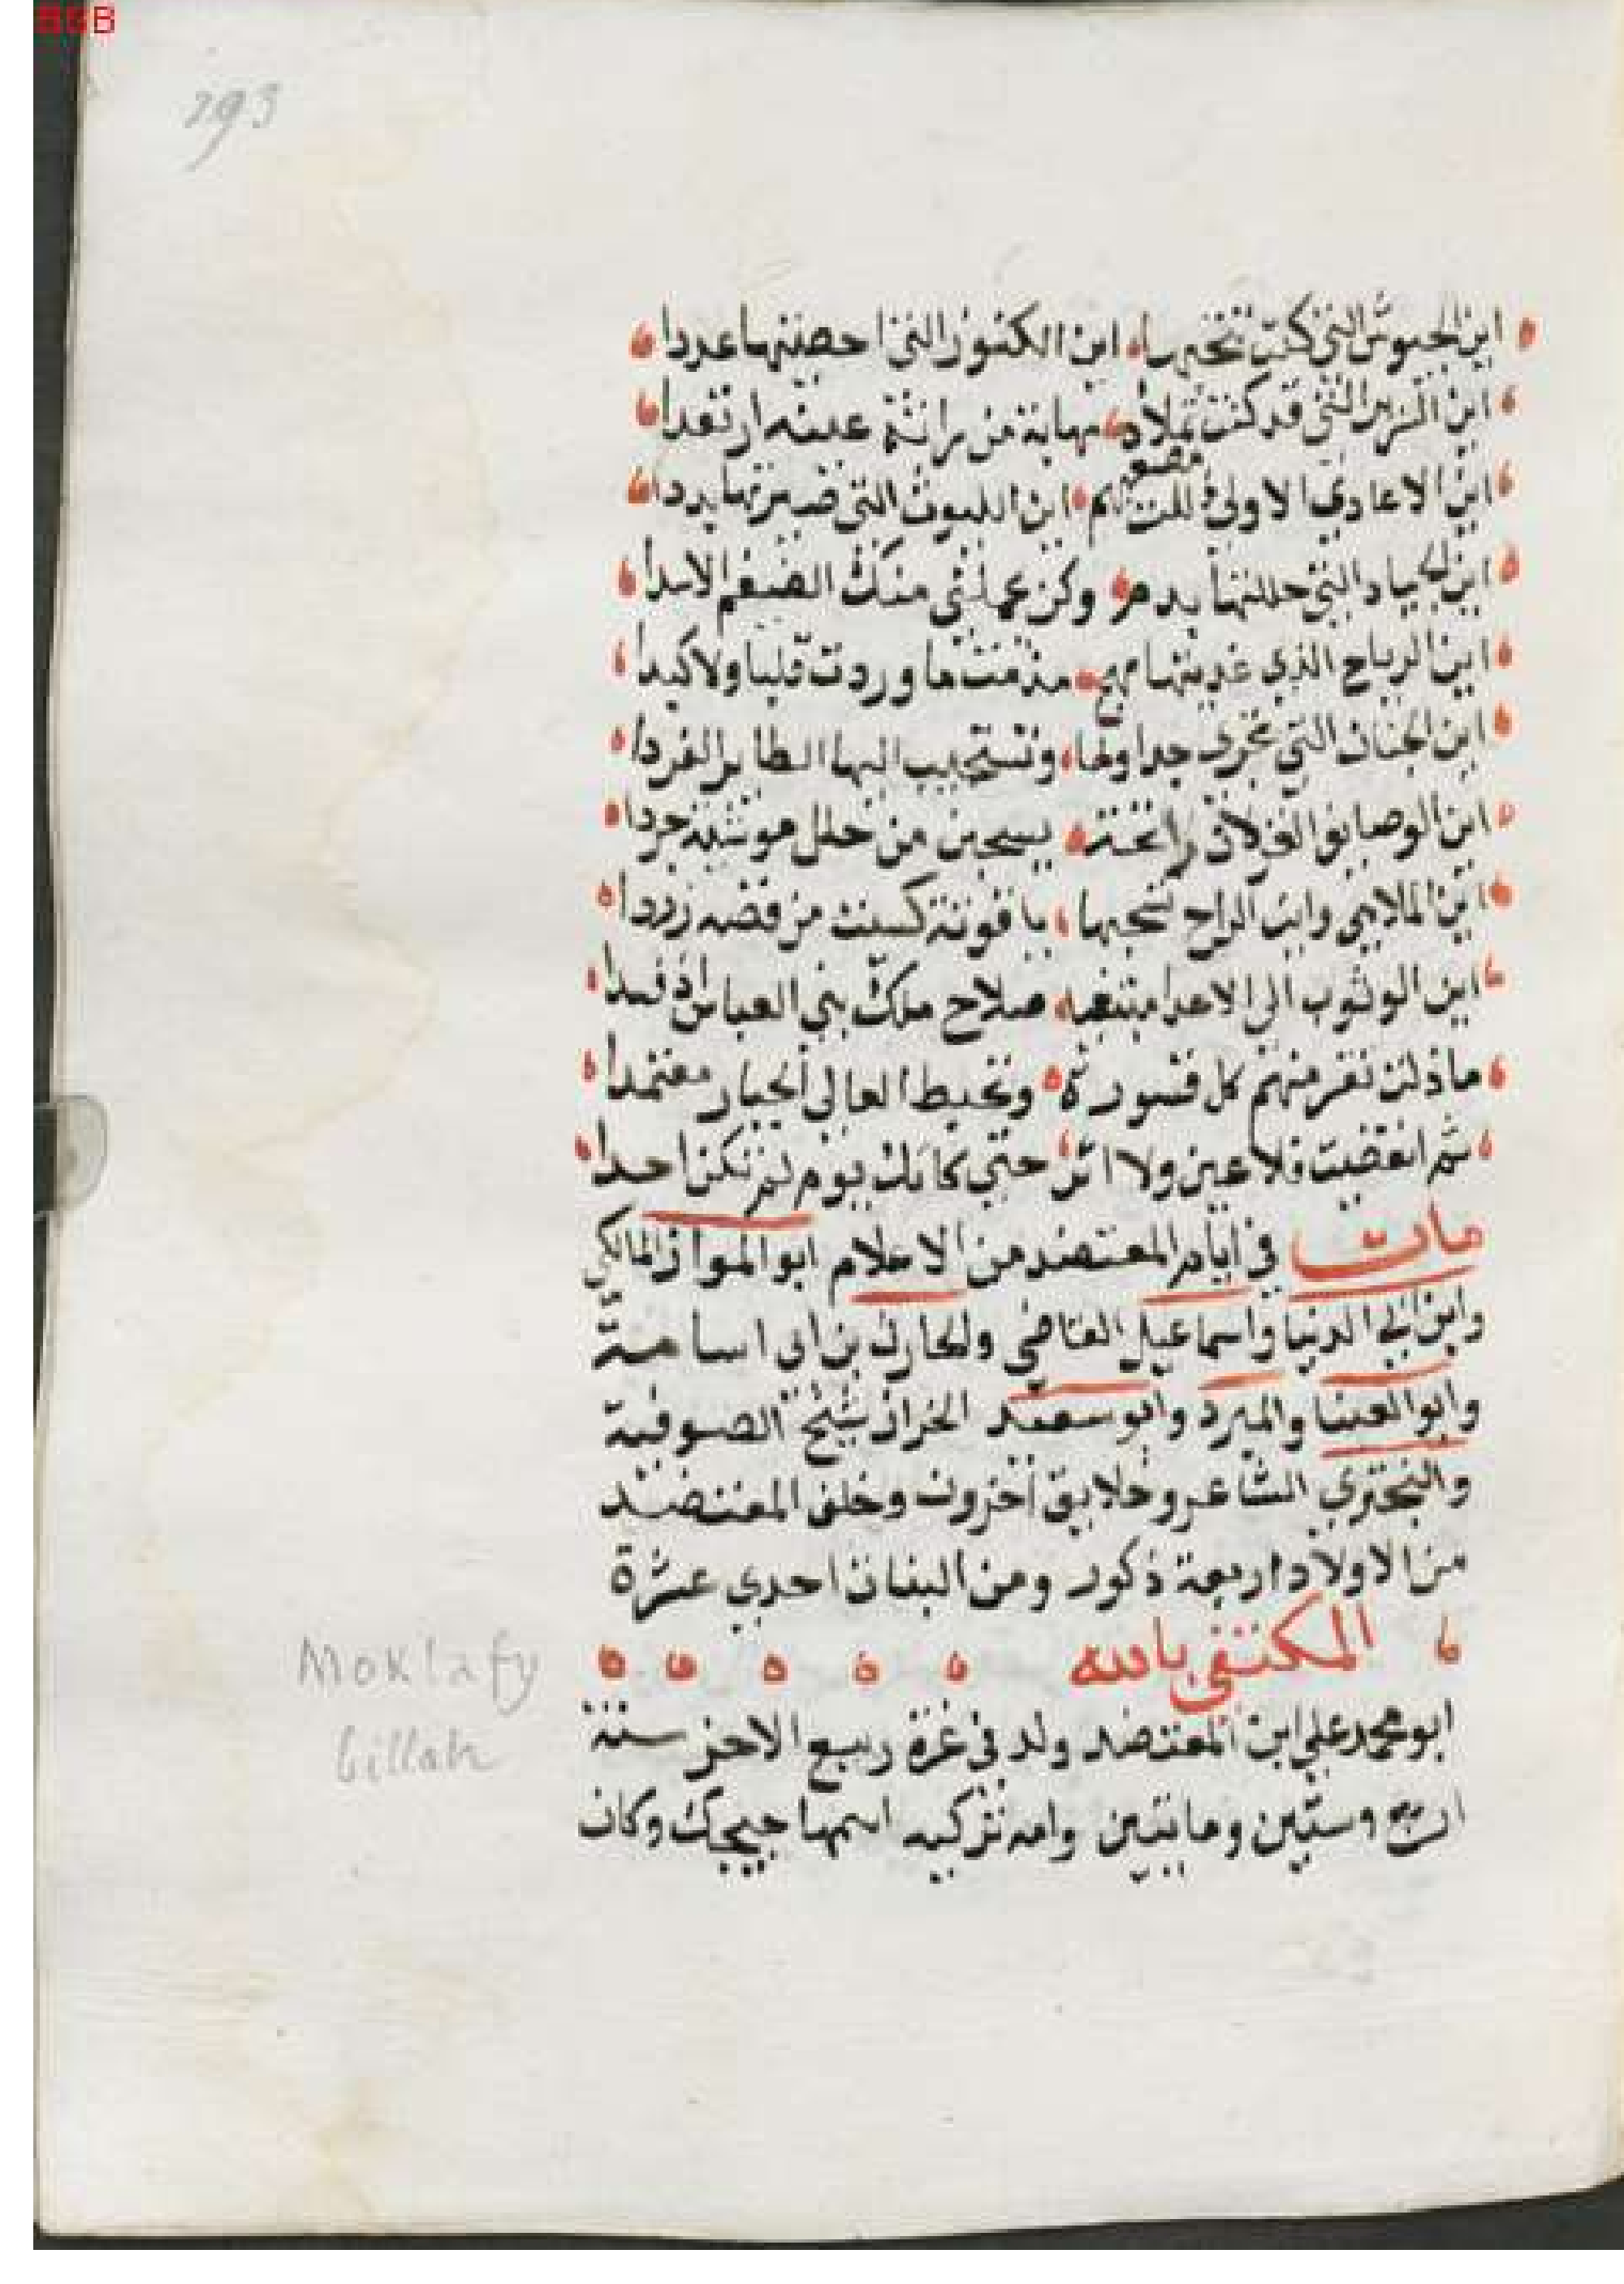 293
اين الجيوش التي كنت تخبرها اين الكنوز التي احصيتها عددا
اين السرير الذي قد كنت تملاه مهابة من راته عينه ارتعدا
اين الاعادي الاولى ذللت مصعبهم اين الليوث التي صيرتها بددا
اين الجياد التي حجلتها بدم وكن يحملن منك الضيغم الاسدا
اين الرماح الذي غذيتها مهج مذمت ما وردت قلبا ولا كبدا
اين الجنان التي تجري جداولها وتستجيب اليها الطاير الغردا
اين الوصايف الغزلان رايحة يسحبن من حلل موشية جردا
اين الملاهي واين الراح تحبها ياقوتة كسيت من فضه زردا
اين الوثوب الى الاعدا مبتغيه صلاح ملك بني العباس اذ فسدا
ما زلت تقسر منهم كل قسورة وتحيط العالي الجبار معتمدا
ثم انقضيت فلا عين ولا اثر حتى كانك يوم لم تكن احدا
مات في ايام المعتضد من الاعلام ابو المواز المالكي
وابن ابي الدنيا واسماعيل القاضي والحارث بن ابى اسامة
وابو العينا والمبرد وابو سعيد الخراز شيخ الصوفية
والبحتري الشاعر وخلايق اخرون وخلف المعتضد
من الاولاد اربعة ذكور ومن البنات احدي عشرة
المكتفي بالله
Moktafy
billah
ابو محمد علي ابن المعتضد ولد في غرة ربيع الاخر سنة
اربع وستين ومايتين وامه تركيه اسمها جيجك وكان